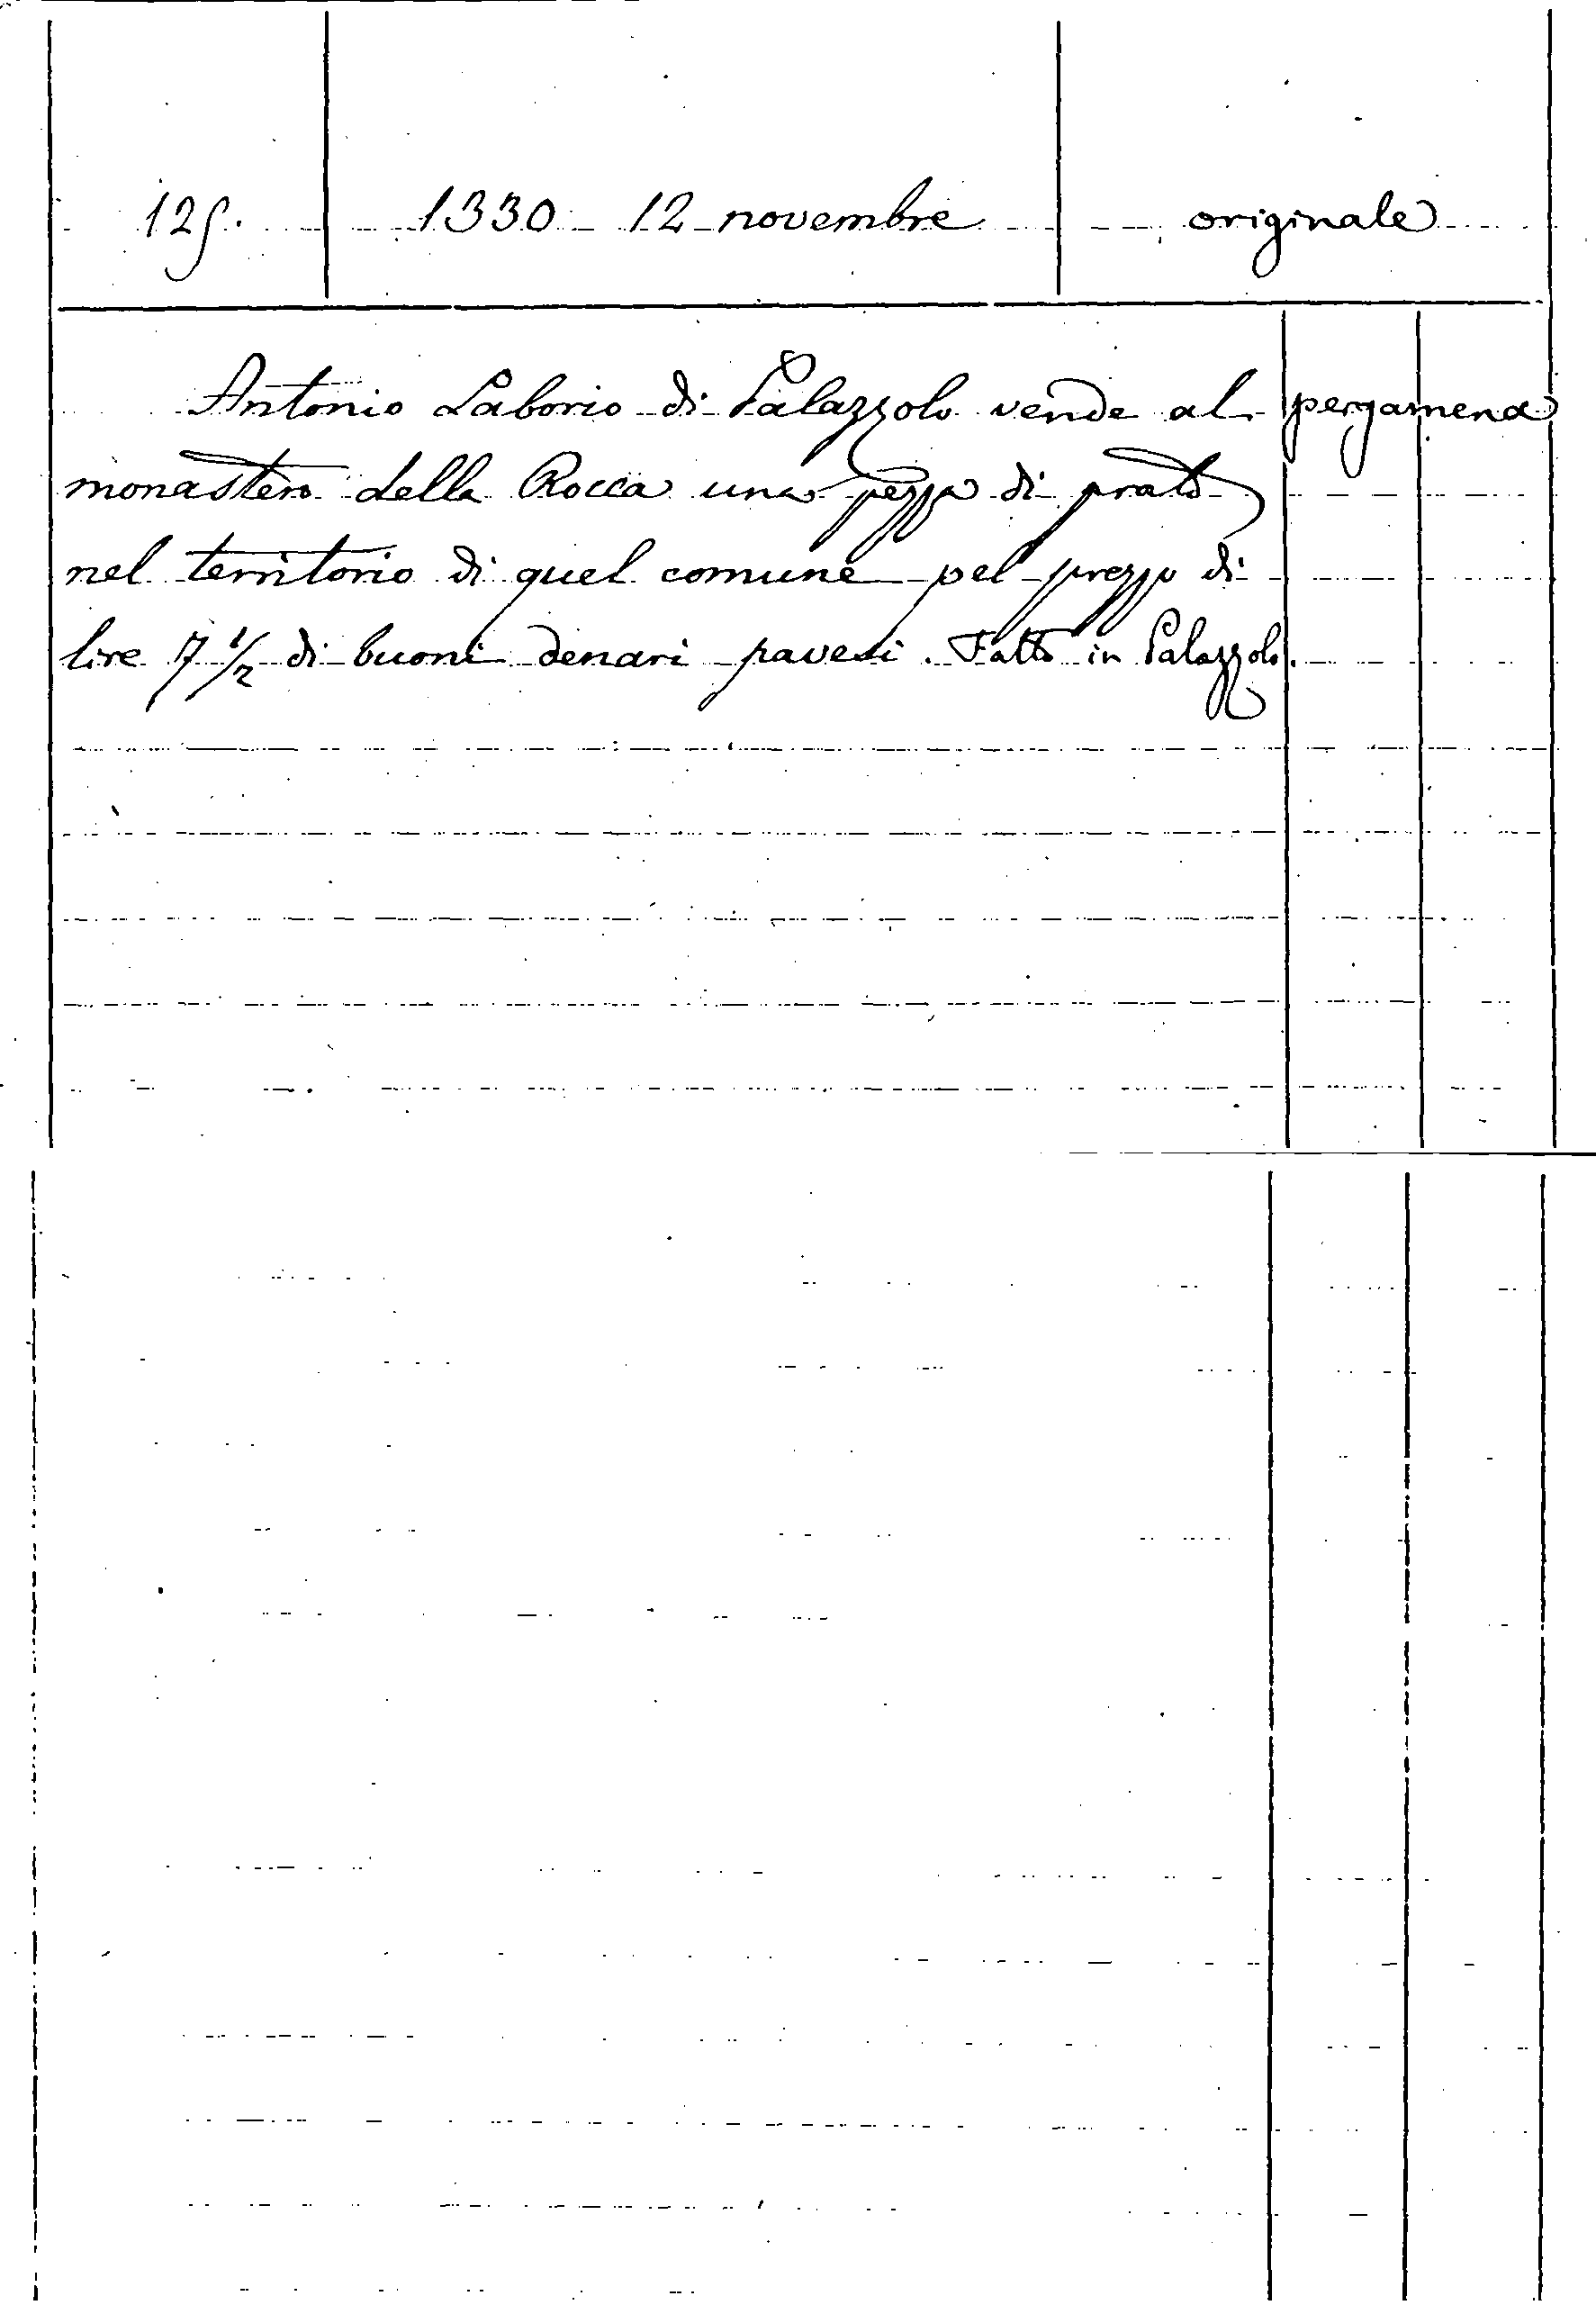 125. 1330 12 novembre originale
Antonio Laborio di Palazzolo vende al pergamena
monastero della Rocca una pezza di prato
nel territorio di quel comune pel prezzo di
lire 7 1/2 di buoni denari pavesi. Fatto in Palazzolo.